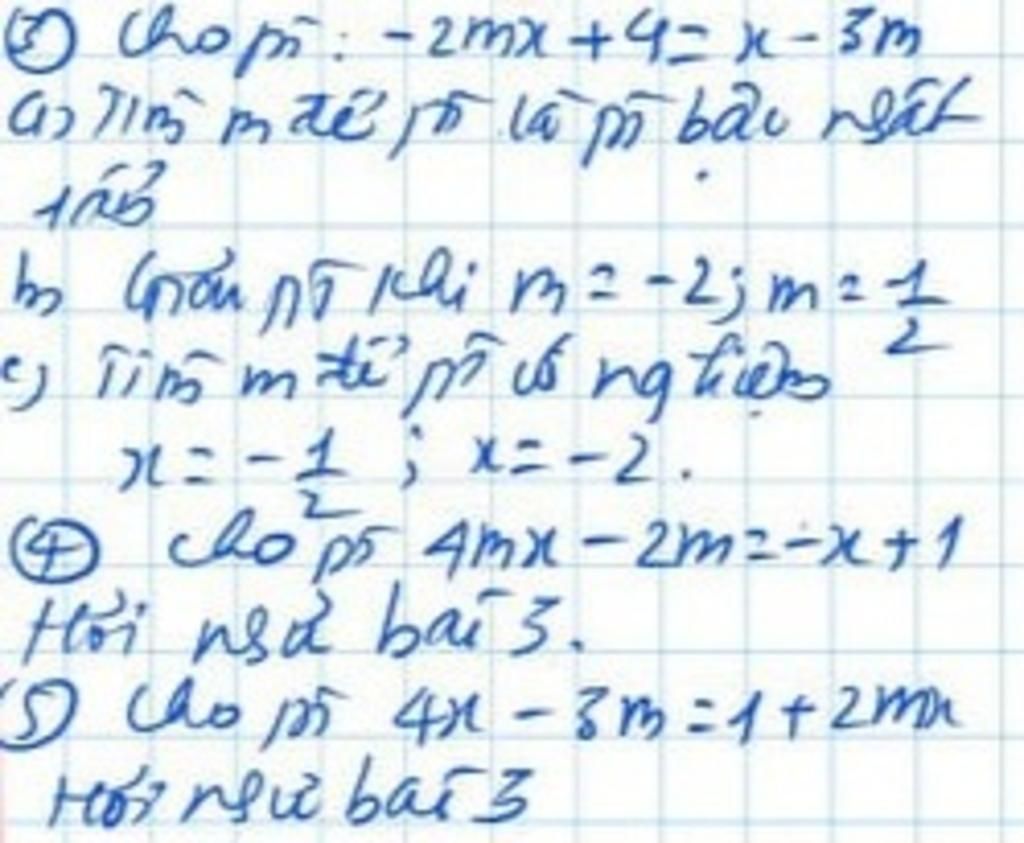 ③ Cho pt: -2mx + 4 = x - 3m
a) Tìm m để pt là pt bậc nhất
1 ẩn
b) Giải pt khi m = -2; m = 1/2
c) Tìm m để pt có nghiệm
x = -1/2 ; x = -2.
④ Cho pt 4mx - 2m = -x + 1
Hỏi như bài 3.
⑤ Cho pt 4x - 3m = 1 + 2mx
Hỏi như bài 3